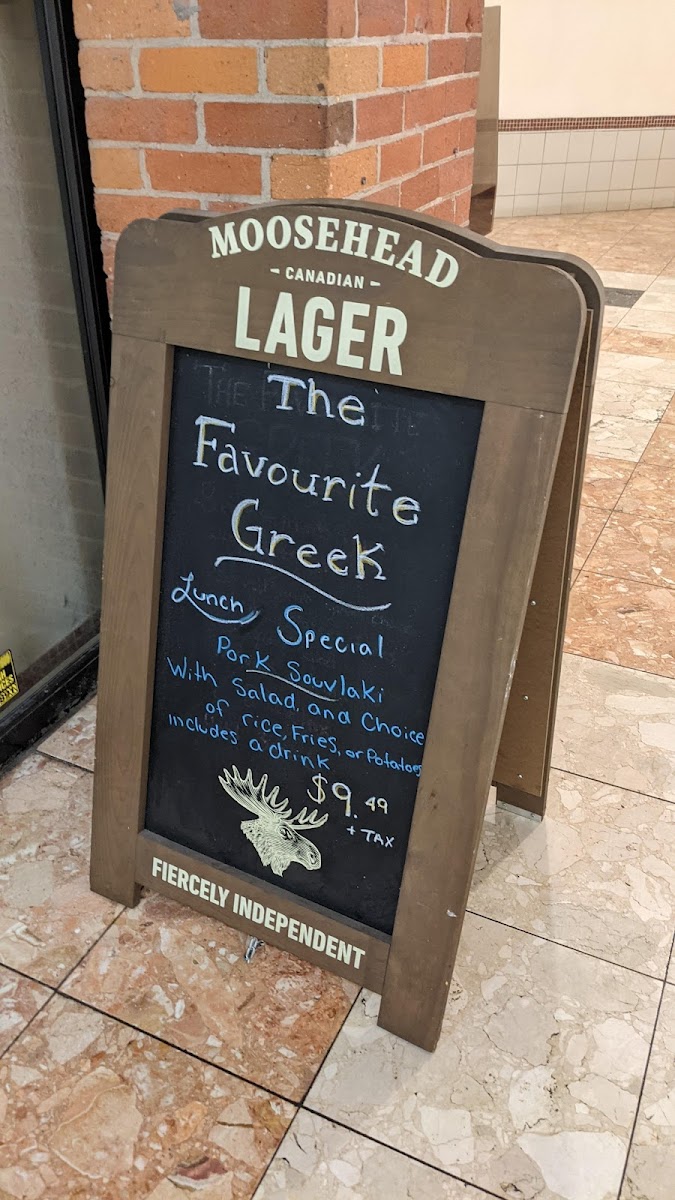 MOOSEHEAD
- CANADIAN -
LAGER
The
Favourite
Greek
Lunch Special
Pork Souvlaki
With Salad, and Choice
of rice, Fries, or Potatoes
includes a drink
$9.49
+ TAX
FIERCELY INDEPENDENT